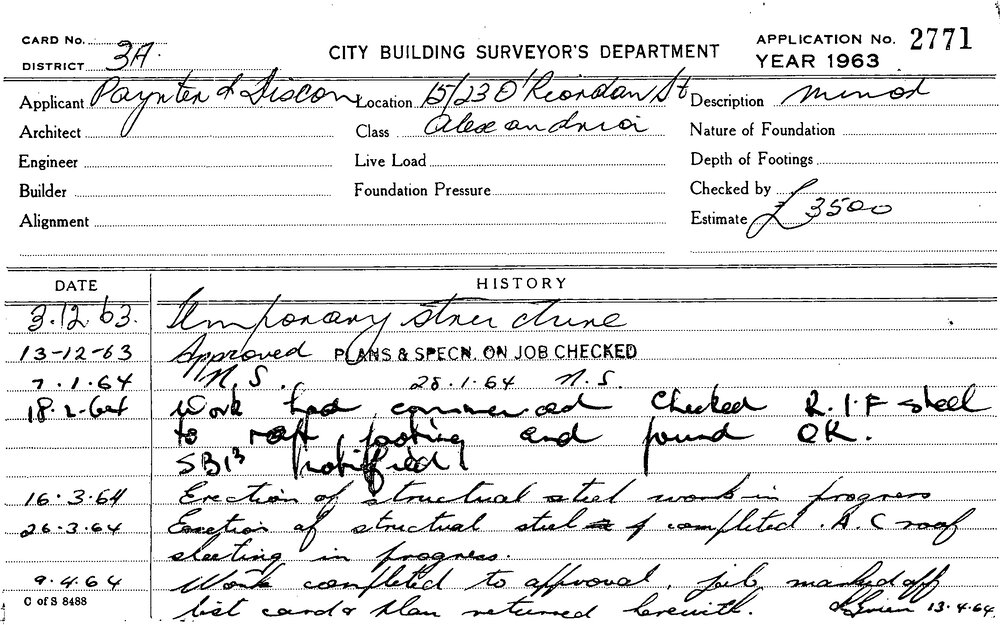 CARD No.
DISTRICT 3A.
CITY BUILDING SURVEYOR'S DEPARTMENT
APPLICATION No. 2771
YEAR 1963
Applicant Paynter & Location 15/23 O'Riordan St Description minor
Architect Class Alexandria Nature of Foundation
Engineer Live Load Depth of Footings
Builder Foundation Pressure Checked by
Alignment Estimate £3500
DATE HISTORY
3.12.63. Temporary structure
13-12-63 Approved PLANS & SPECN. ON JOB CHECKED
7.1.64 N.S. 28.1.64 N.S.
18.2.64 Work had commenced Checked R.I.F steel
to raft footing and found OK.
SB13
16.3.64 Erection of structural steel work in progress
26.3.64 Erection of structural steel completed. A.C roof
sheeting in progress.
9.4.64 Work completed to approval, job marked off
list card & plan returned herewith. 13.4.64
C of S 8488